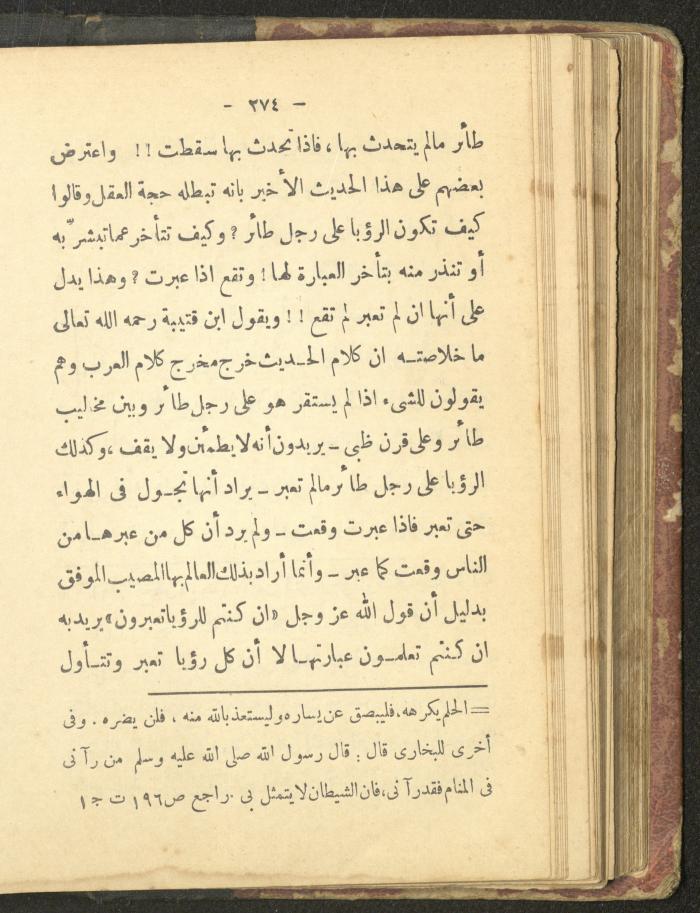 – ٢٧٤ –
طائر مالم يتحدث بها ، فاذا تحدث بها سقطت !! واعترض
بعضهم على هذا الحديث الأخير بانه تبطله حجة العقل وقالوا
كيف تكون الرؤيا على رجل طائر ؟ وكيف تتأخر عما تبشّر به
أو تنذر منه بتأخر العبارة لها ! وتقع اذا عبرت ؟ وهذا يدل
على أنها ان لم تعبر لم تقع !! ويقول ابن قتيبة رحمه الله تعالى
ما خلاصتـه ان كلام الحـديث خرج مخرج كلام العرب وهم
يقولون للشىء اذا لم يستقر هو على رجل طائر وبين مخاليب
طائر وعلى قرن ظبى ـ يريدون أنه لا يطمئن ولا يقف ، وكذلك
الرؤيا على رجل طائر مالم تعبر ـ يراد أنها تجـول فى الهواء
حتى تعبر فاذا عبرت وقعت ـ ولم يرد أن كل من عبرهـا من
الناس وقعت كما عبر ـ وأنما أراد بذلك العالم بها المصيب الموفق
بدليل أن قول الله عز وجل «ان كنتم للرؤيا تعبرون» يريد به
ان كنتم تعلمـون عبارتهـا لا أن كل رؤيا تعبر وتتـأول
= الحلم يكرهه، فليبصق عن يساره وليستعذ بالله منه ، فلن يضره . وفى
أخرى للبخارى قال : قال رسول الله صلى الله عليه وسلم من رآنى
فى المنام فقد رآنى، فان الشيطان لا يتمثل بى . راجع ص ١٩٦ ت ج ١